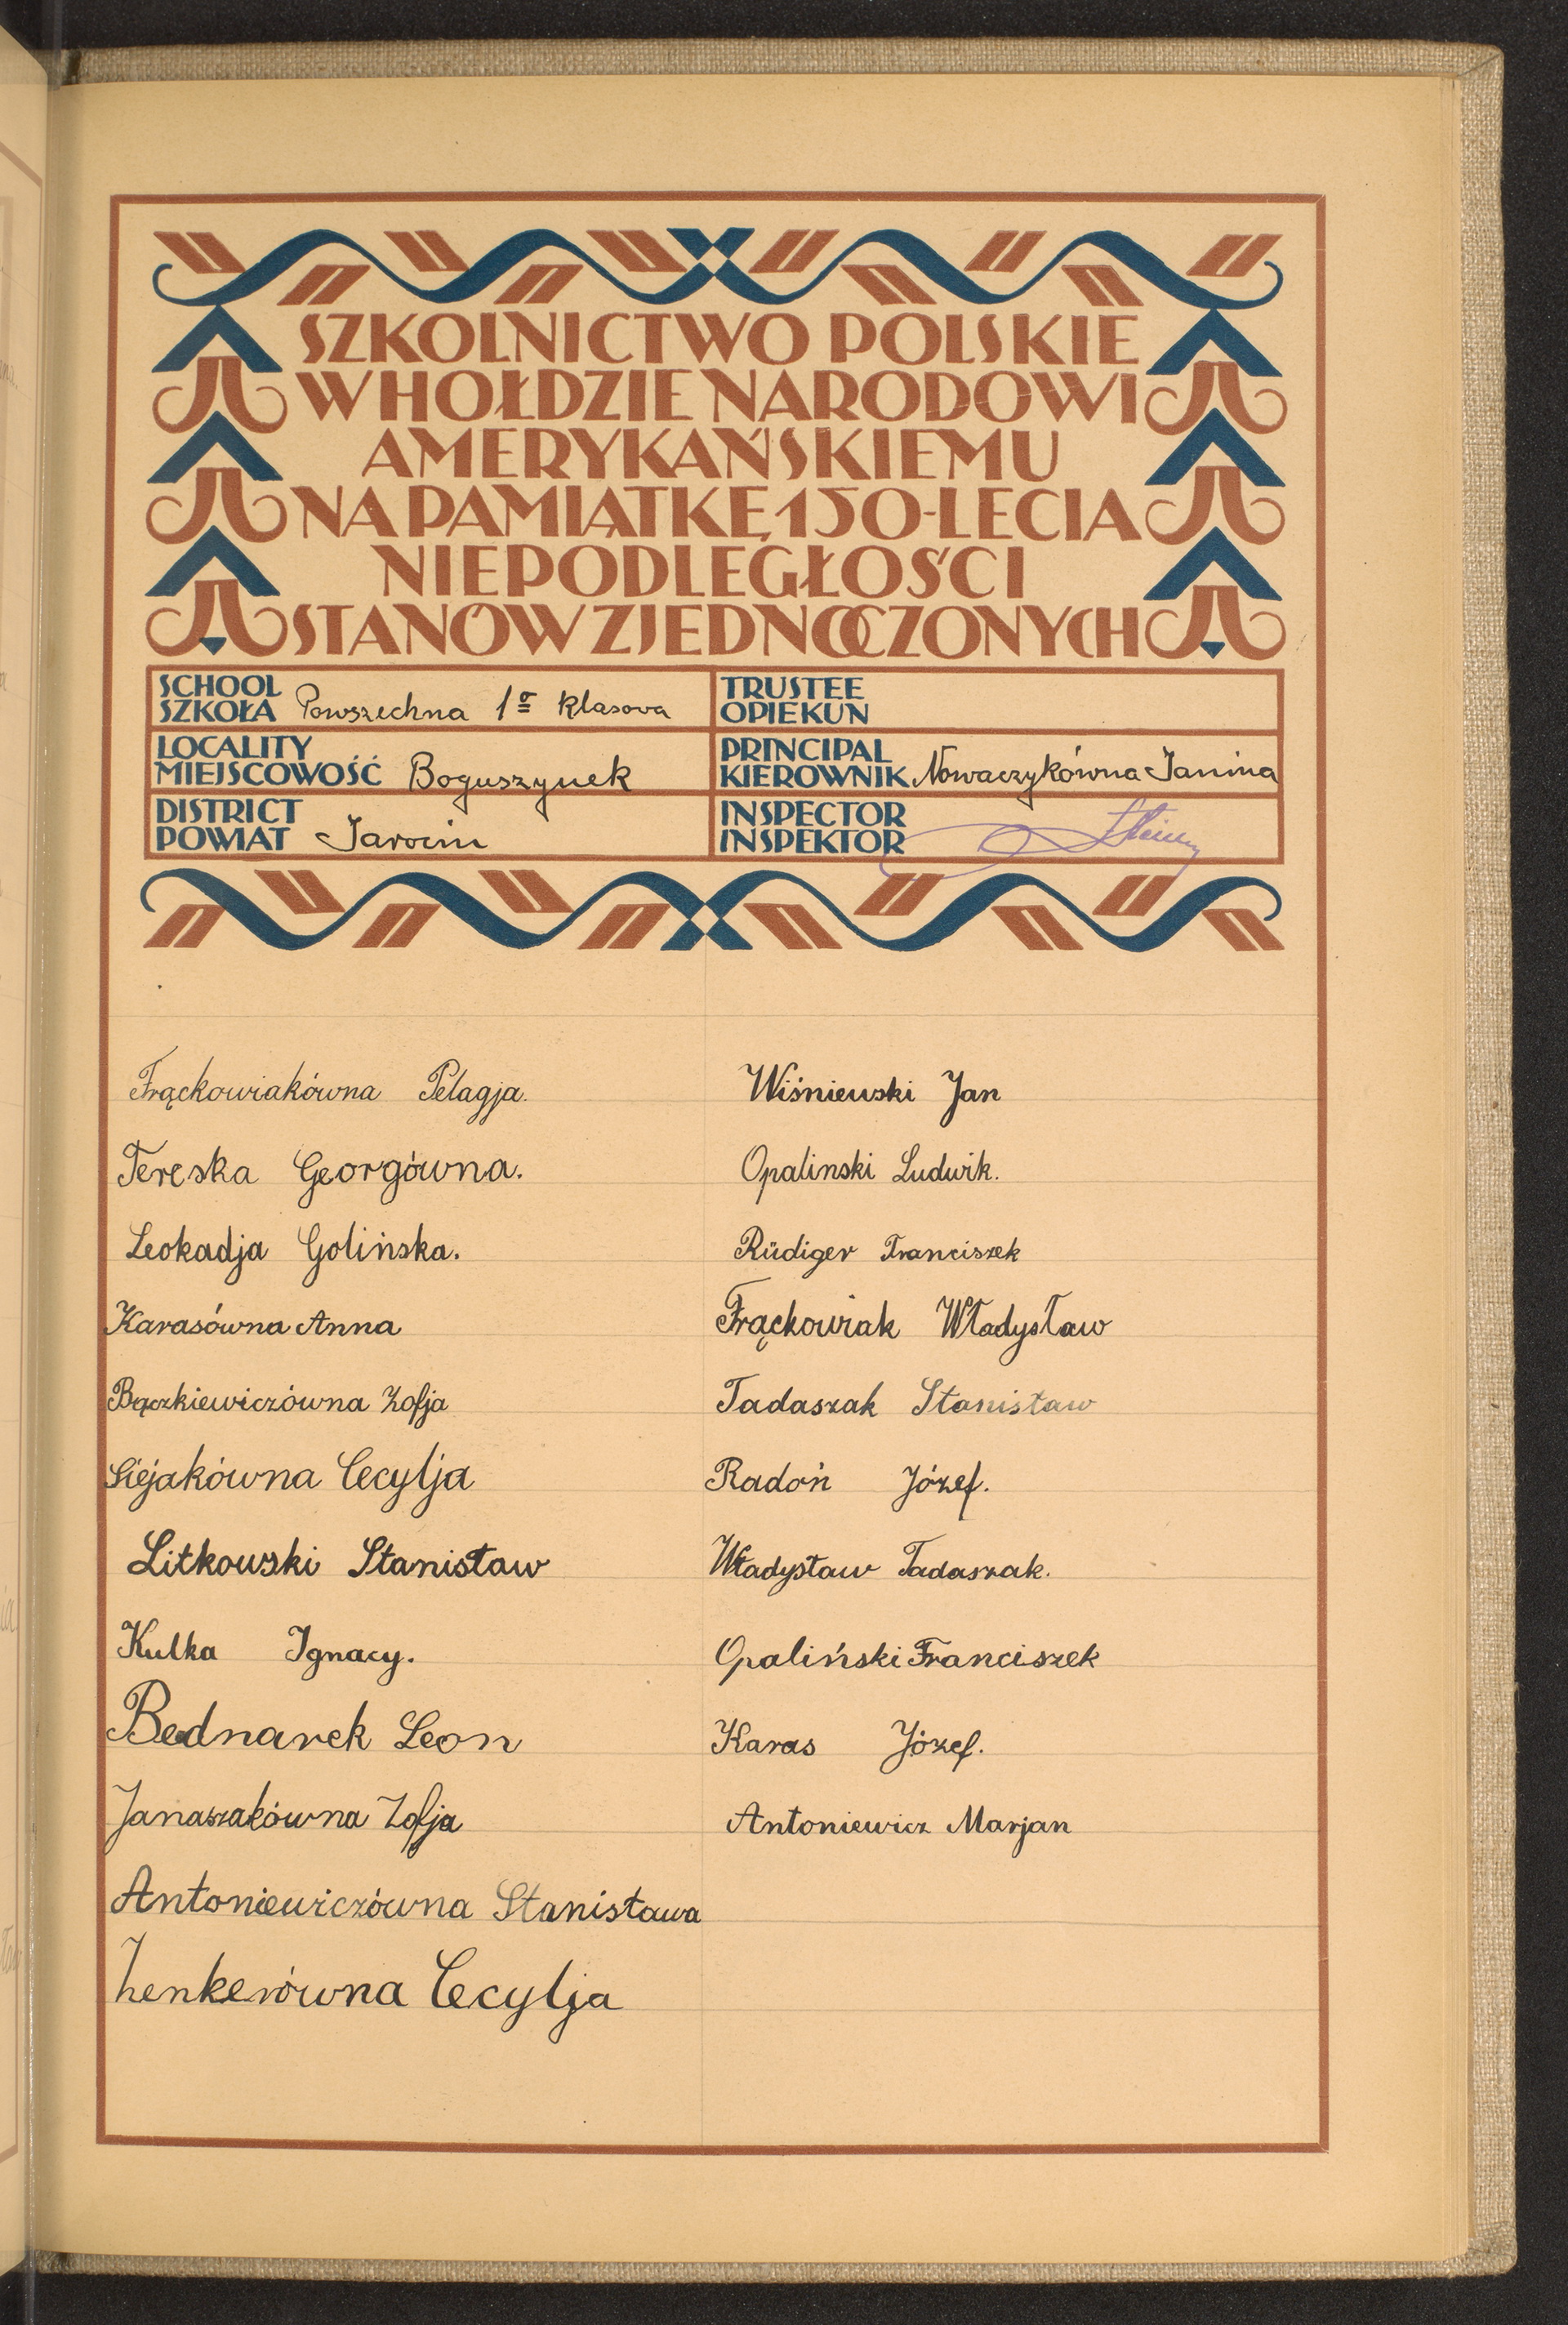 SZKOLNICTWO POLSKIE
W HOŁDZIE NARODOWI
AMERYKAŃSKIEMU
NA PAMIĄTKĘ 150-LECIA
NIEPODLEGŁOŚCI
STANÓW ZJEDNOCZONYCH
SCHOOL
SZKOŁA Powszechna 1º klasowa
LOCALITY
MIEJSCOWOŚĆ Boguszynek
DISTRICT
POWIAT Jarocin
TRUSTEE
OPIEKUN
PRINCIPAL
KIEROWNIK Nowaczykówna Janina
INSPECTOR
INSPEKTOR
Frąckowiakówna Pelagja.
Tereska Georgówna.
Leokadja Golińska.
Karasówna Anna
Bączkiewiczówna Zofja
Siejakówna Cecylja
Litkowski Stanisław
Kulka Ignacy.
Bednarek Leon
Janaszakówna Zofja
Antoniewiczówna Stanisława
Zenkerówna Cecylja
Wiśniewski Jan
Opalinski Ludwik.
Rüdiger Franciszek
Frąckowiak Władysław
Tadaszak Stanisław
Radoń Józef.
Władysław Tadaszak.
Opaliński Franciszek
Karas Józef.
Antoniewicz Marjan